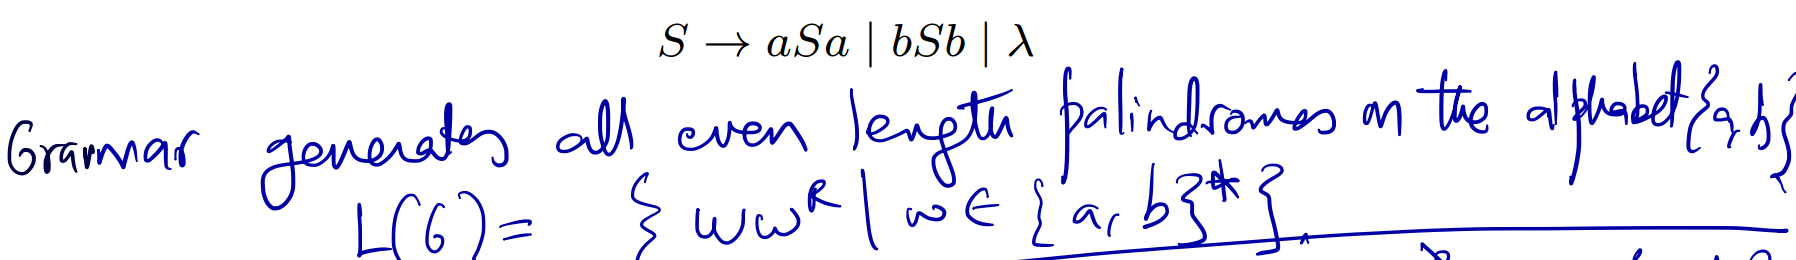 S → aSa | bSb | λ
Grammar generates all even length palindromes on the alphabet {a, b}
L(G) = { ww^R | w ∈ {a, b}* }.